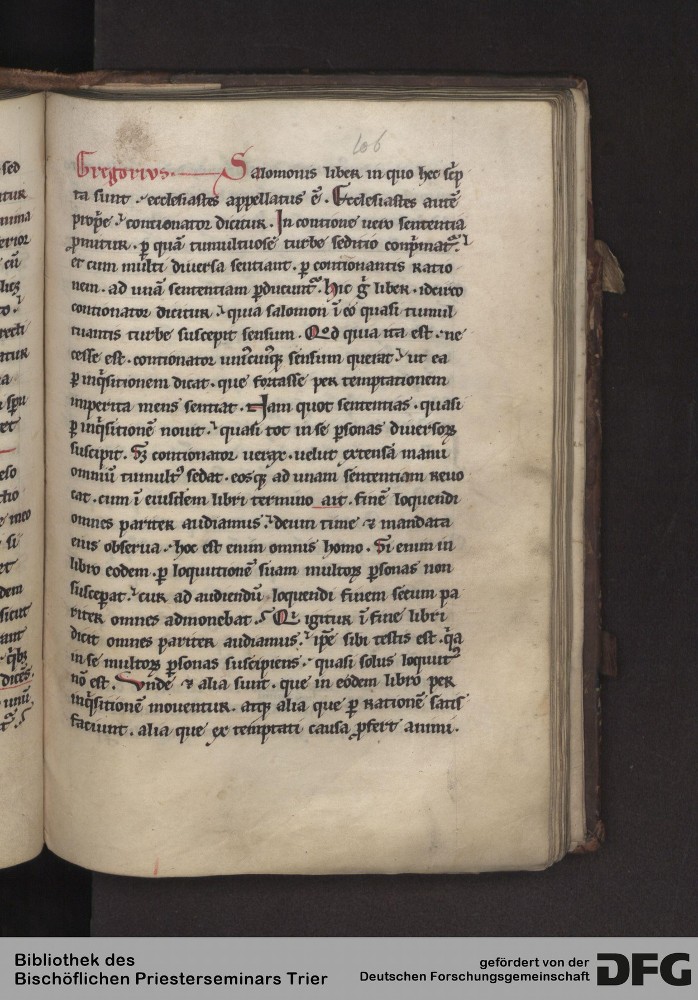 106
Gregorius. Salomonis liber in quo hec sc̄p
ta sunt · ecclesiastes appellatus ē. Ecclesiastes autē
propͥe contionator dicitur. In contione uero sententia
ꝓmitur. ꝑ quā tumultuose turbe seditio conp̄mat᷑.
et cum multi diuersa sentiant. ꝑ contionantis ratio
nem. ad unā sententiam ꝑducunt᷑. Hic gͦ liber. idcirco
contionator dicitur quia salomon ī eo quasi tumul
tuantis turbe suscepit sensum. Qd̓ quia ita est. ne
cesse est. contionator uniꝰcuiusqꝫ sensum querat ut ea
ꝑ inqͥsitionem dicat. que fortasse per temptationem
imperita mens sentiat. Nam quot sententias. quasi
ꝑ inqͥsitionē nouit. quasi tot in se ꝑsonas diuersoꝝ
suscipit. Sꝫ contionator uerax. uelut extensa manu
omniū tumultꝰ sedat. eosqꝫ ad unam sententiam reuo
cat. cum ī eiusdem libri termino ait. finē loquendi
omnes pariter audiamus. deum time ⁊ mandata
eius obserua. hoc est enim omnis homo. Si enim in
libro eodem. ꝑ loquutionē suam multoꝝ ꝑsonas non
susceꝑat. cur ad audiendū loquendi finem secum pa
riter omnes admonebat. Qͥ igitur ī fine libri
dicit omnes pariter audiamus. ip̄e sibi testis est. qͥa
in se multoꝝ ꝑsonas suscipiens. quasi solus loquut᷑
nō est. Vnde ⁊ alia sunt. que in eodem libro per
inqͥsitionē mouentur. atqꝫ alia que ꝑ rationē satis
faciunt. alia que ex temptati causa ꝓfert animi.
Bibliothek des
Bischöflichen Priesterseminars Trier
gefördert von der
Deutschen Forschungsgemeinschaft
DFG